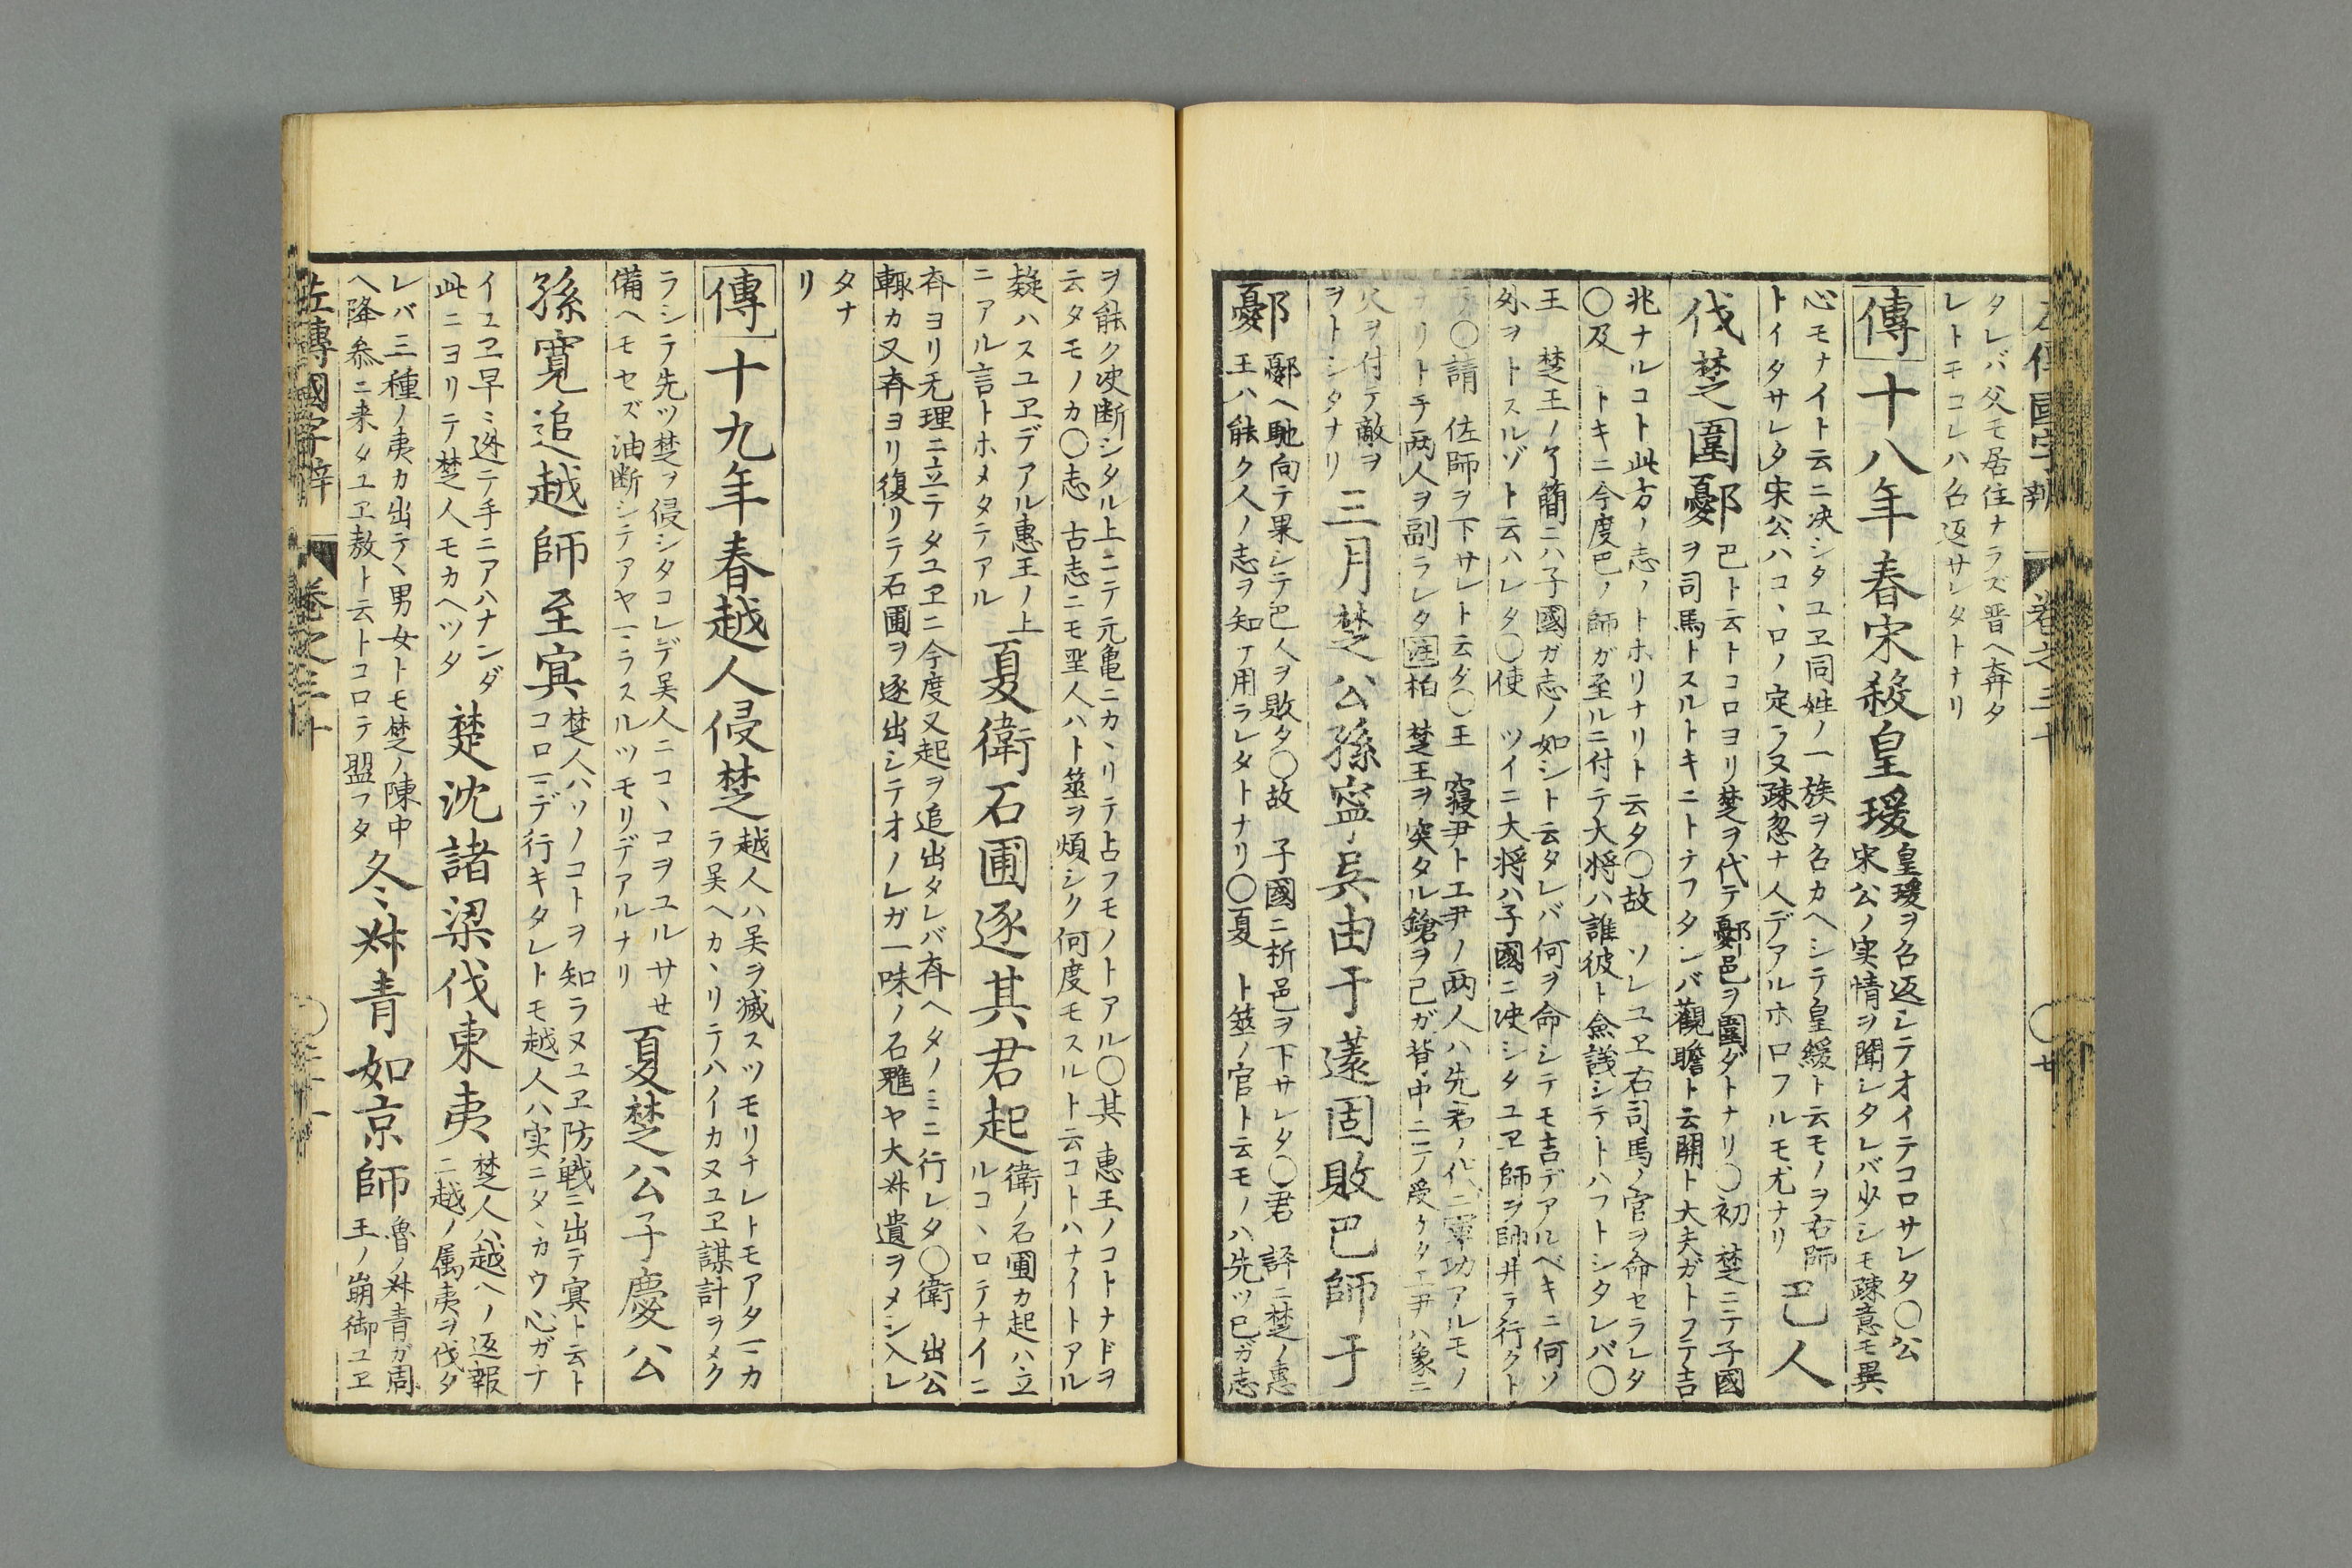 タレバ父モ居住ナラズ晋ヘ奔タ
レトモコレハ召返サレタトナリ
傳十八年春宋殺皇瑗
皇瑗ヲ召返シテオイテコロサレタ〇公
宋公ノ実情ヲ聞シタレバ少シモ疎意モ異
心モナイト云ニ决シタユヱ同姓ノ一族ヲ召カヘシテ皇緩ト云モノヲ右師
トイタサレタ宋公ハコヽロノ定ラヌ疎忽ナ人デアルホロフルモ尤ナリ
巴人
伐楚圍鄾
巴ト云トコロヨリ楚ヲ伐テ鄾邑ヲ圍ダトナリ〇初 楚ニテ子國
ヲ司馬トスルトキニトナフタンバ觀瞻ト云開ト大夫ガトフテ吉
兆ナルコト此方ノ志ノトホリナリト云タ〇故 ソレユヱ右司馬ノ官ヲ命セラレタ
〇及 トキニ今度巴ノ師ガ至ルニ付テ大将ハ誰彼ト僉議シテトハフトシタレバ〇
王 楚王ノ了簡ニハ子國ガ志ノ如シト云タレバ何ヲ命シテモ吉デアルベキニ何ソ
外ヲトスルゾト云ハレタ〇使 ツイニ大将ハ子國ニ决シタユヱ師ヲ帥井テ行クト
〇請 佐師ヲ下サレト云タ〇王 寝尹ト工尹ノ两人ハ先君ノ代ニ軍功アルモノ
ナリト乎两人ヲ副ラレタ 柏 楚王ヲ突タル鎗ヲ己ガ背中ニテ受ケタ工尹ハ象ニ
火ヲ付テ敵ヲ
ヲトシタナリ
三月楚公孫寧吳由于薳固敗巴師于
鄾
鄾ヘ馳向テ果シテ巴人ヲ敗タ〇故 子國ニ析邑ヲ下サレタ〇君 評ニ楚ノ惠
王ハ能ク人ノ志ヲ知テ用ラレタトナリ〇夏 ト筮ノ官ト云モノハ先ツ己ガ志
ヲ能ク决断シタル上ニテ元亀ニカヽリテ占フモノトアル〇其 惠王ノコトナドヲ
云タモノカ〇志 古志ニモ聖人ハト筮ヲ煩シク何度モスルト云コトハナイトアル
疑ハスユヱデアル惠王ノ上
ニアル言トホメタテアル
夏衛石圃逐其君起
衛ノ石圃カ起ハ立
ルコヽロテナイニ
斉ヨリ无理ニ立テタユヱニ今度又起ヲ追出タレバ斉ヘタノミニ行レタ〇衛 出公
輙カ又斉ヨリ復リテ石圃ヲ逐出シテオノレガ一味ノ石魋ヤ大叔遺ヲメシ入レ
タナ
リ
傳十九年春越人侵楚
越人ハ吴ヲ滅スツモリナレトモアタマカ
ラ吴ヘカヽリテハイカヌユヱ謀計ヲメク
ラシテ先ツ楚ヲ侵シタコレデ吴人ニコヽコヲユルサセ
備ヘモセズ油断シテアヤマラスルツモリデアルナリ
夏楚公子慶公
孫寛追越師至冥
楚人ハソノコトヲ知ラヌユヱ防戦ニ出テ冥ト云ト
コロマデ行キタレトモ越人ハ実ニタヽカウ心ガナ
イユヱ早ミ逃テ手ニアハナンダ
此ニヨリテ楚人モカヘツタ
楚沈諸梁伐東夷
楚人ハ越ヘノ返報
ニ越ノ属夷ヲ伐タ
レバ三種ノ夷カ出テヽ男女トモ楚ノ陳中
ヘ降叅ニ来タユヱ敖ト云トコロテ盟フタ
冬叔青如京師
魯ノ叔青ガ周
王ノ崩御ユヱ
左傳國字辯 卷之三十